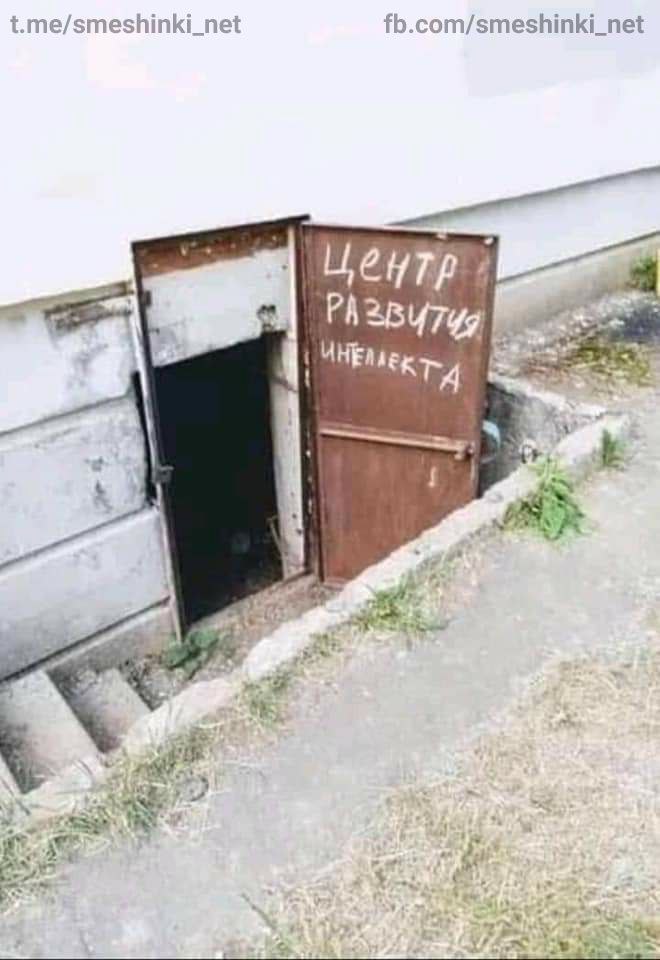 t.me/smeshinki_net fb.com/smeshinki_net
Центр
развития
интеллекта